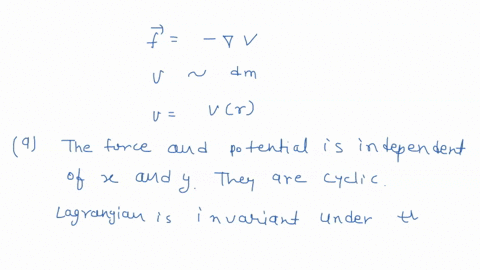 f⃗ = - ∇ V
v ~ dm
v = V(r)
(a) The force and potential is independent
of x and y. They are cyclic.
Lagrangian is invariant under